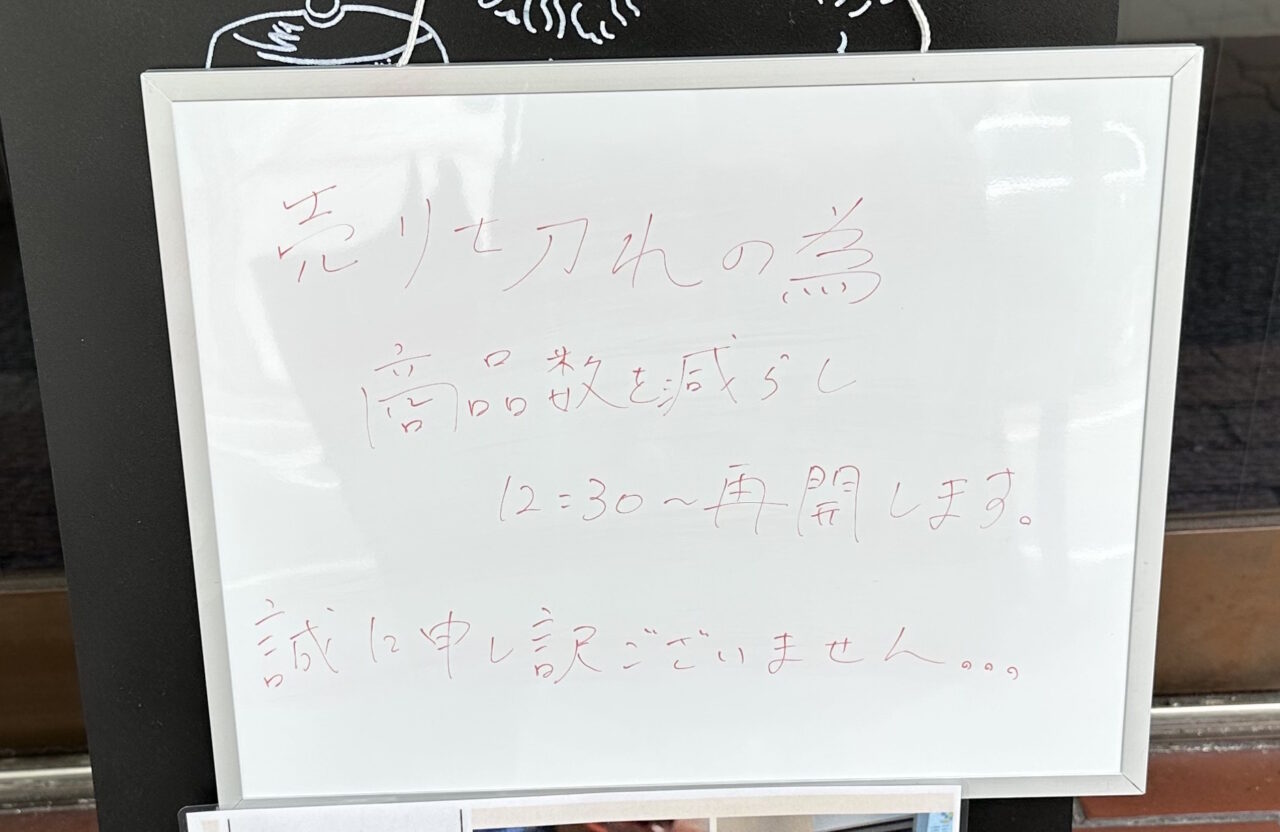 売り切れの為
商品数を減らし
12:30〜再開します。
誠に申し訳ございません。。。